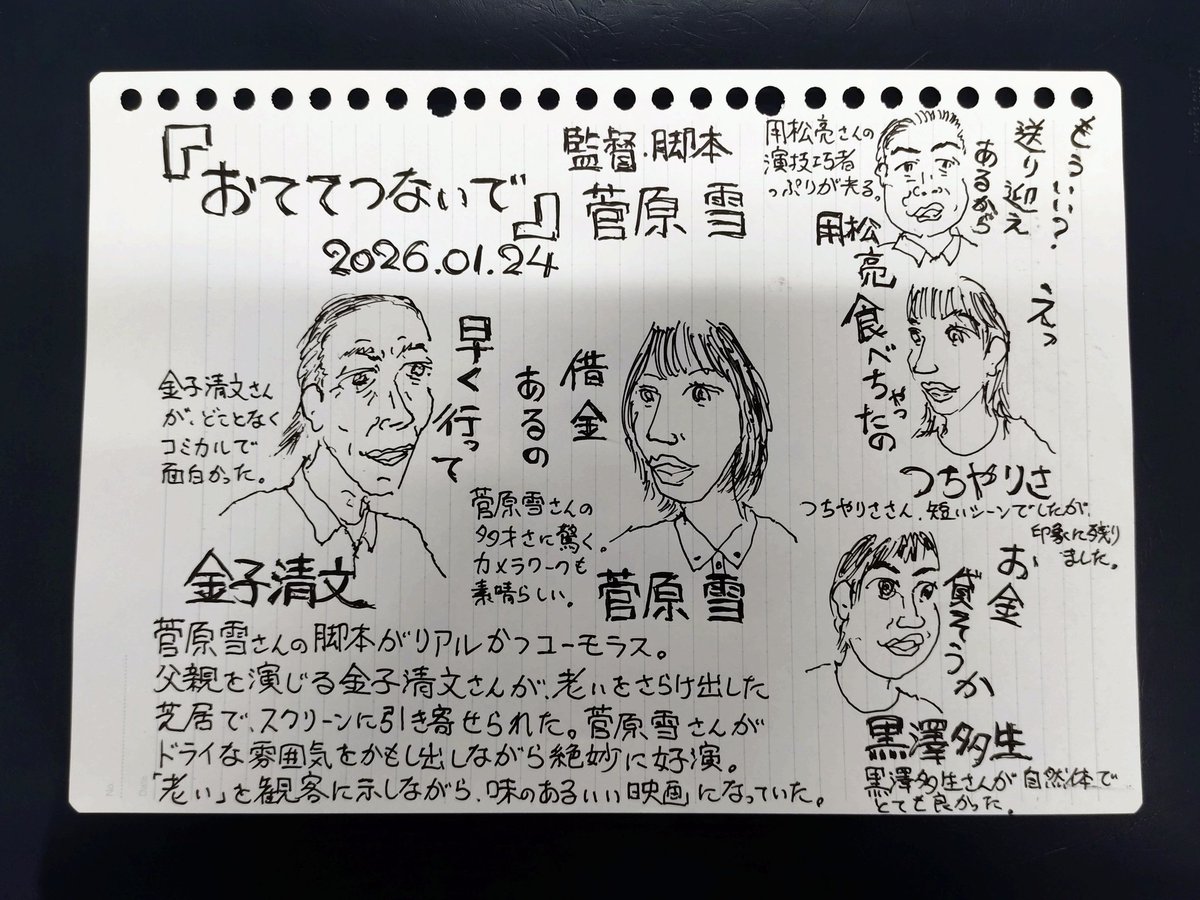 『おててつないで』
監督・脚本
菅原 雪
2026.01.24
用松亮さんの
演技巧者
っぷりが光る。
もういい?
送り迎え
あるから
用松亮
えっ、
食べちゃったの
つちやりさ
つちやりささん、短いシーンでしたが、
印象に残り
ました。
早く行って
金子清文さん
が、どことなく
コミカルで
面白かった。
金子清文
借金
あるの
菅原雪さんの
多才さに驚く。
カメラワークも
素晴らしい。
菅原 雪
お金
貸そうか
黒澤多生
黒澤多生さんが自然体で
とても良かった。
菅原雪さんの脚本がリアルかつユーモラス。
父親を演じる金子清文さんが、老いをさらけ出した
芝居で、スクリーンに引き寄せられた。菅原雪さんが
ドライな雰囲気をかもし出しながら絶妙に好演。
「老い」を観客に示しながら、味のあるいい映画になっていた。